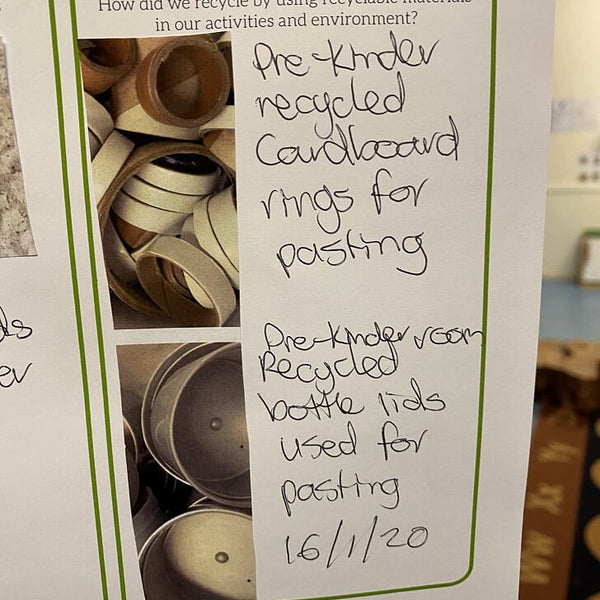 How did we recycle by using recyclable materials
in our activities and environment?
Pre-Kinder
recycled
Cardboard
rings for
pasting
Pre-Kinder room
Recycled
bottle lids
used for
pasting
16/1/20